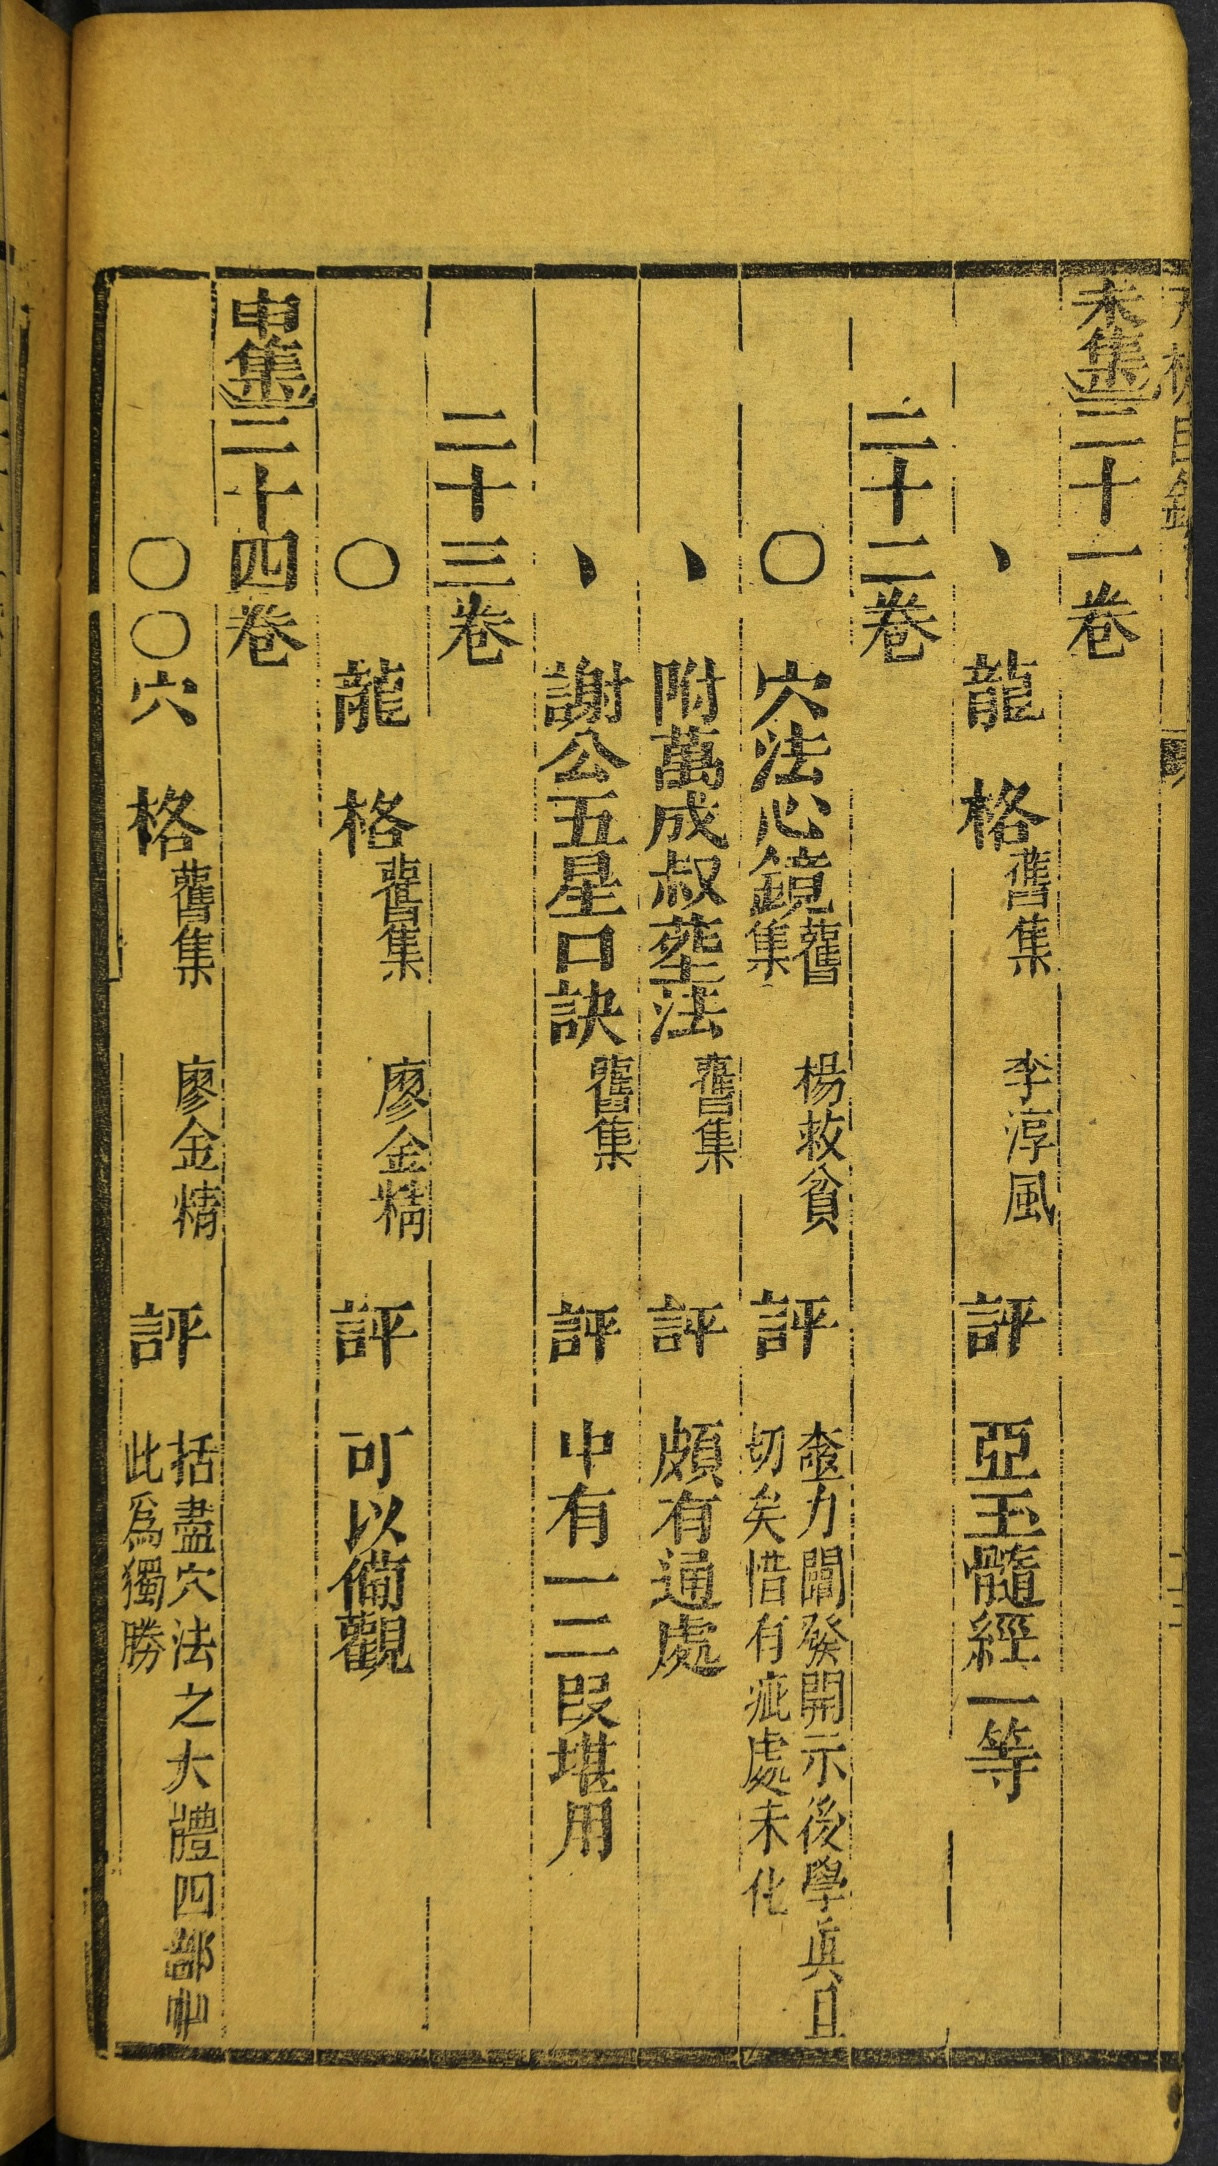 未集二十一卷
、龍格舊集 李淳風 評 亞玉髓經一等
二十二卷
〇穴法心鏡舊集 楊救貧 評 奎力闡發開示後學真且切矣惜有疵處未化
、附萬成叔葬法舊集 評 頗有通處
、謝公五星口訣舊集 評 中有一二段堪用
二十三卷
〇龍格舊集 廖金精 評 可以備觀
申集二十四卷
〇〇穴格舊集 廖金精 評 括盡穴法之大體四部中此爲獨勝